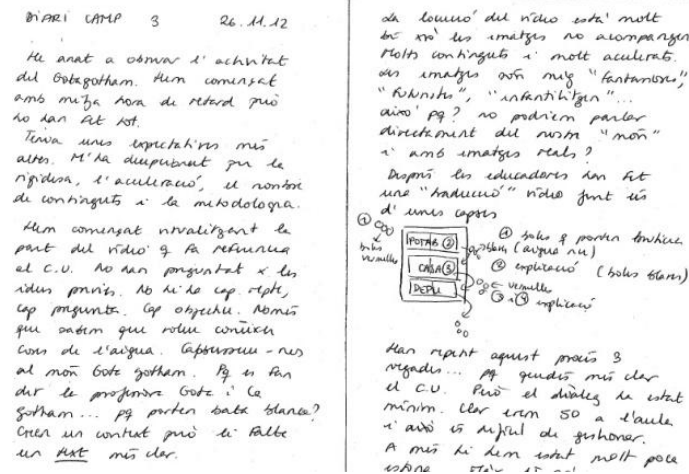 DIARI CAMP 3 26.11.12
He anat a observar l'activitat
del Gotagotham. Hem començat
amb mitja hora de retard però
ho han fet tot.
Tenia unes expectatives més
altes. M'ha decepcionat per la
rigidesa, l'acceleració, el nombre
de continguts i la metodologia.
Hem començat visualitzant la
part del vídeo q fa referència
al C.U. No han preguntat x les
idees prèvies. No hi ha cap repte,
cap pregunta. Cap objectiu. Només
que sabem que volem conèixer
coses de l'aigua.
al món Gota gotham. Pq es fan
dir la professora Gota i la
gotham... pq porten bata blanca?
Creen un context però li falta
un text més clar.
La locució del vídeo està molt
bé xò les imatges no acompanyen
Molts continguts i molt accelerats.
Les imatges són mig "fantasioses",
"futuristes", "infantilitzen"...
això pq? no podríem parlar
directament del nostre "món"
i amb imatges reals?
Després les educadores han fet
una "traducció" vídeo fent ús
d'unes capses
① boles vermelles
POTAB ②
CASA ③
DEPU
blaves (aigua neta)
① boles q porten
② explicació (boles blaves)
vermelles
③ i ④ explicació
Han repetit aquest procés 3
vegades... pq quedés més clar
el C.U. Però el diàleg ha estat
mínim. Clar erem 50 a l'aula
i això és difícil de gestionar.
A més hi hem estat molt poca
estona